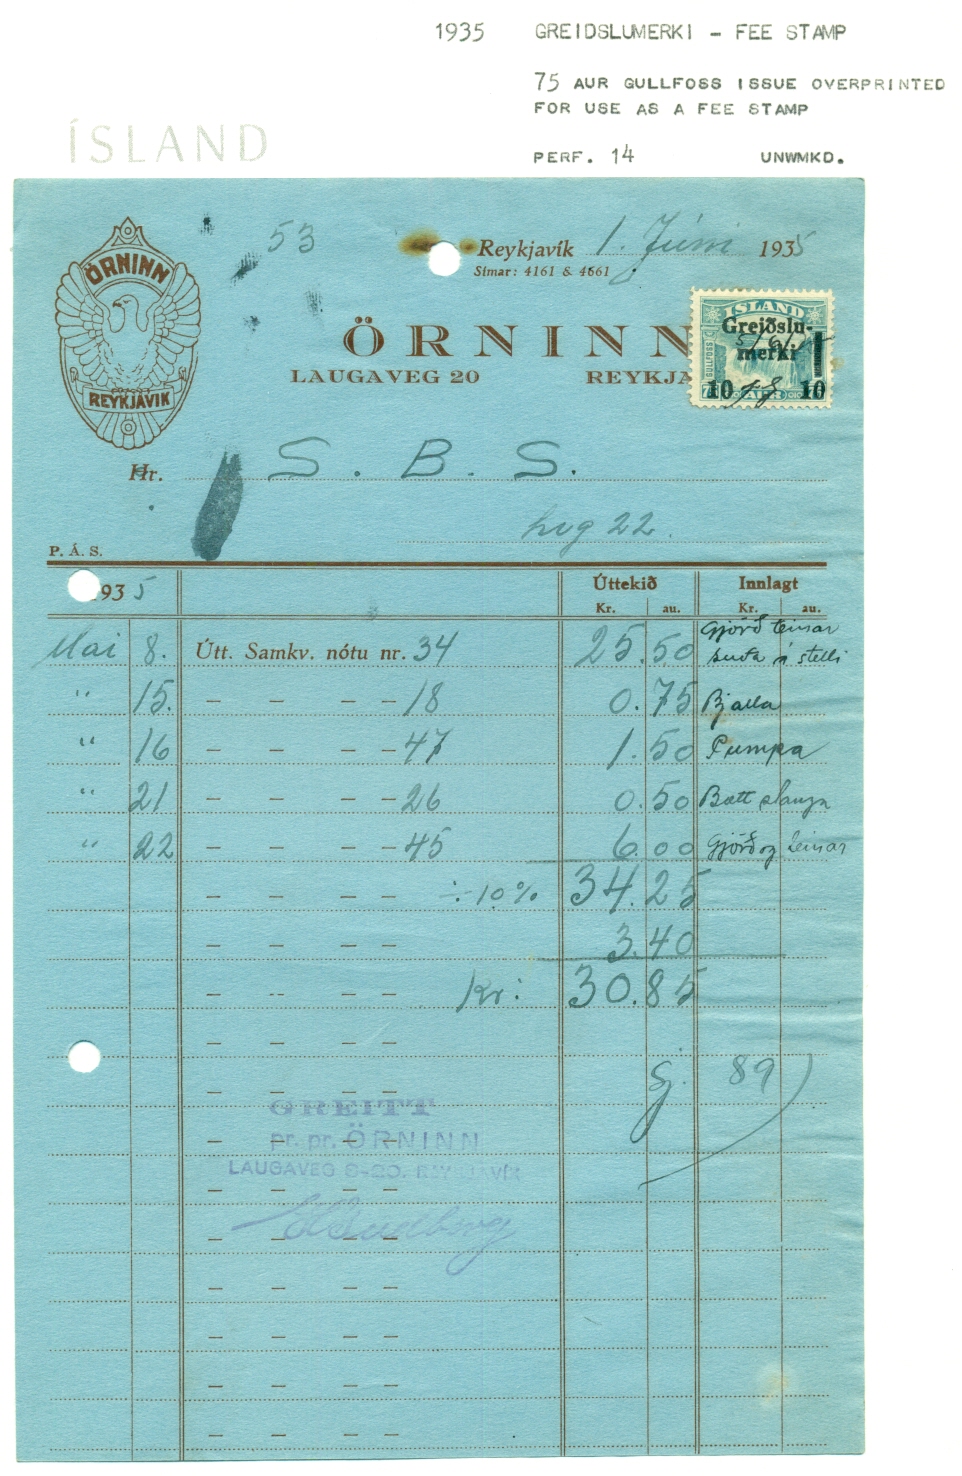 1935 GREIDSLUMERKI - FEE STAMP
75 AUR GULLFOSS ISSUE OVERPRINTED
FOR USE AS A FEE STAMP
ÍSLAND
PERF. 14 UNWMKD.
53
Reykjavík 1. Júní 1935
Símar: 4161 & 4661
ÖRNINN
REYKJAVIK
ÖRNINN
LAUGAVEG 20 REYKJA
ÍSLAND
Greiðslu-
merki
GULLFOSS
10 10
AUR
Hr. S. B. S.
22
P. Á. S.
935 Úttekið Innlagt
Kr. au. Kr. au.
Mai 8. Útt. Samkv. nótu nr. 34 25.50 Gjörð teinar
á stelli
" 15. — — — — 18 0.75 Bjalla
" 16 — — — — 47 1.50 Pumpa
" 21 — — — — 26 0.50 Bætt slanga
" 22 — — — — 45 6.00 Gjörð og teinar
÷ 10% 34.25
3.40
Kr: 30.85
G. 89)
GREITT
pr. pr. ÖRNINN
LAUGAVEG 8-20. REYKJAVÍK